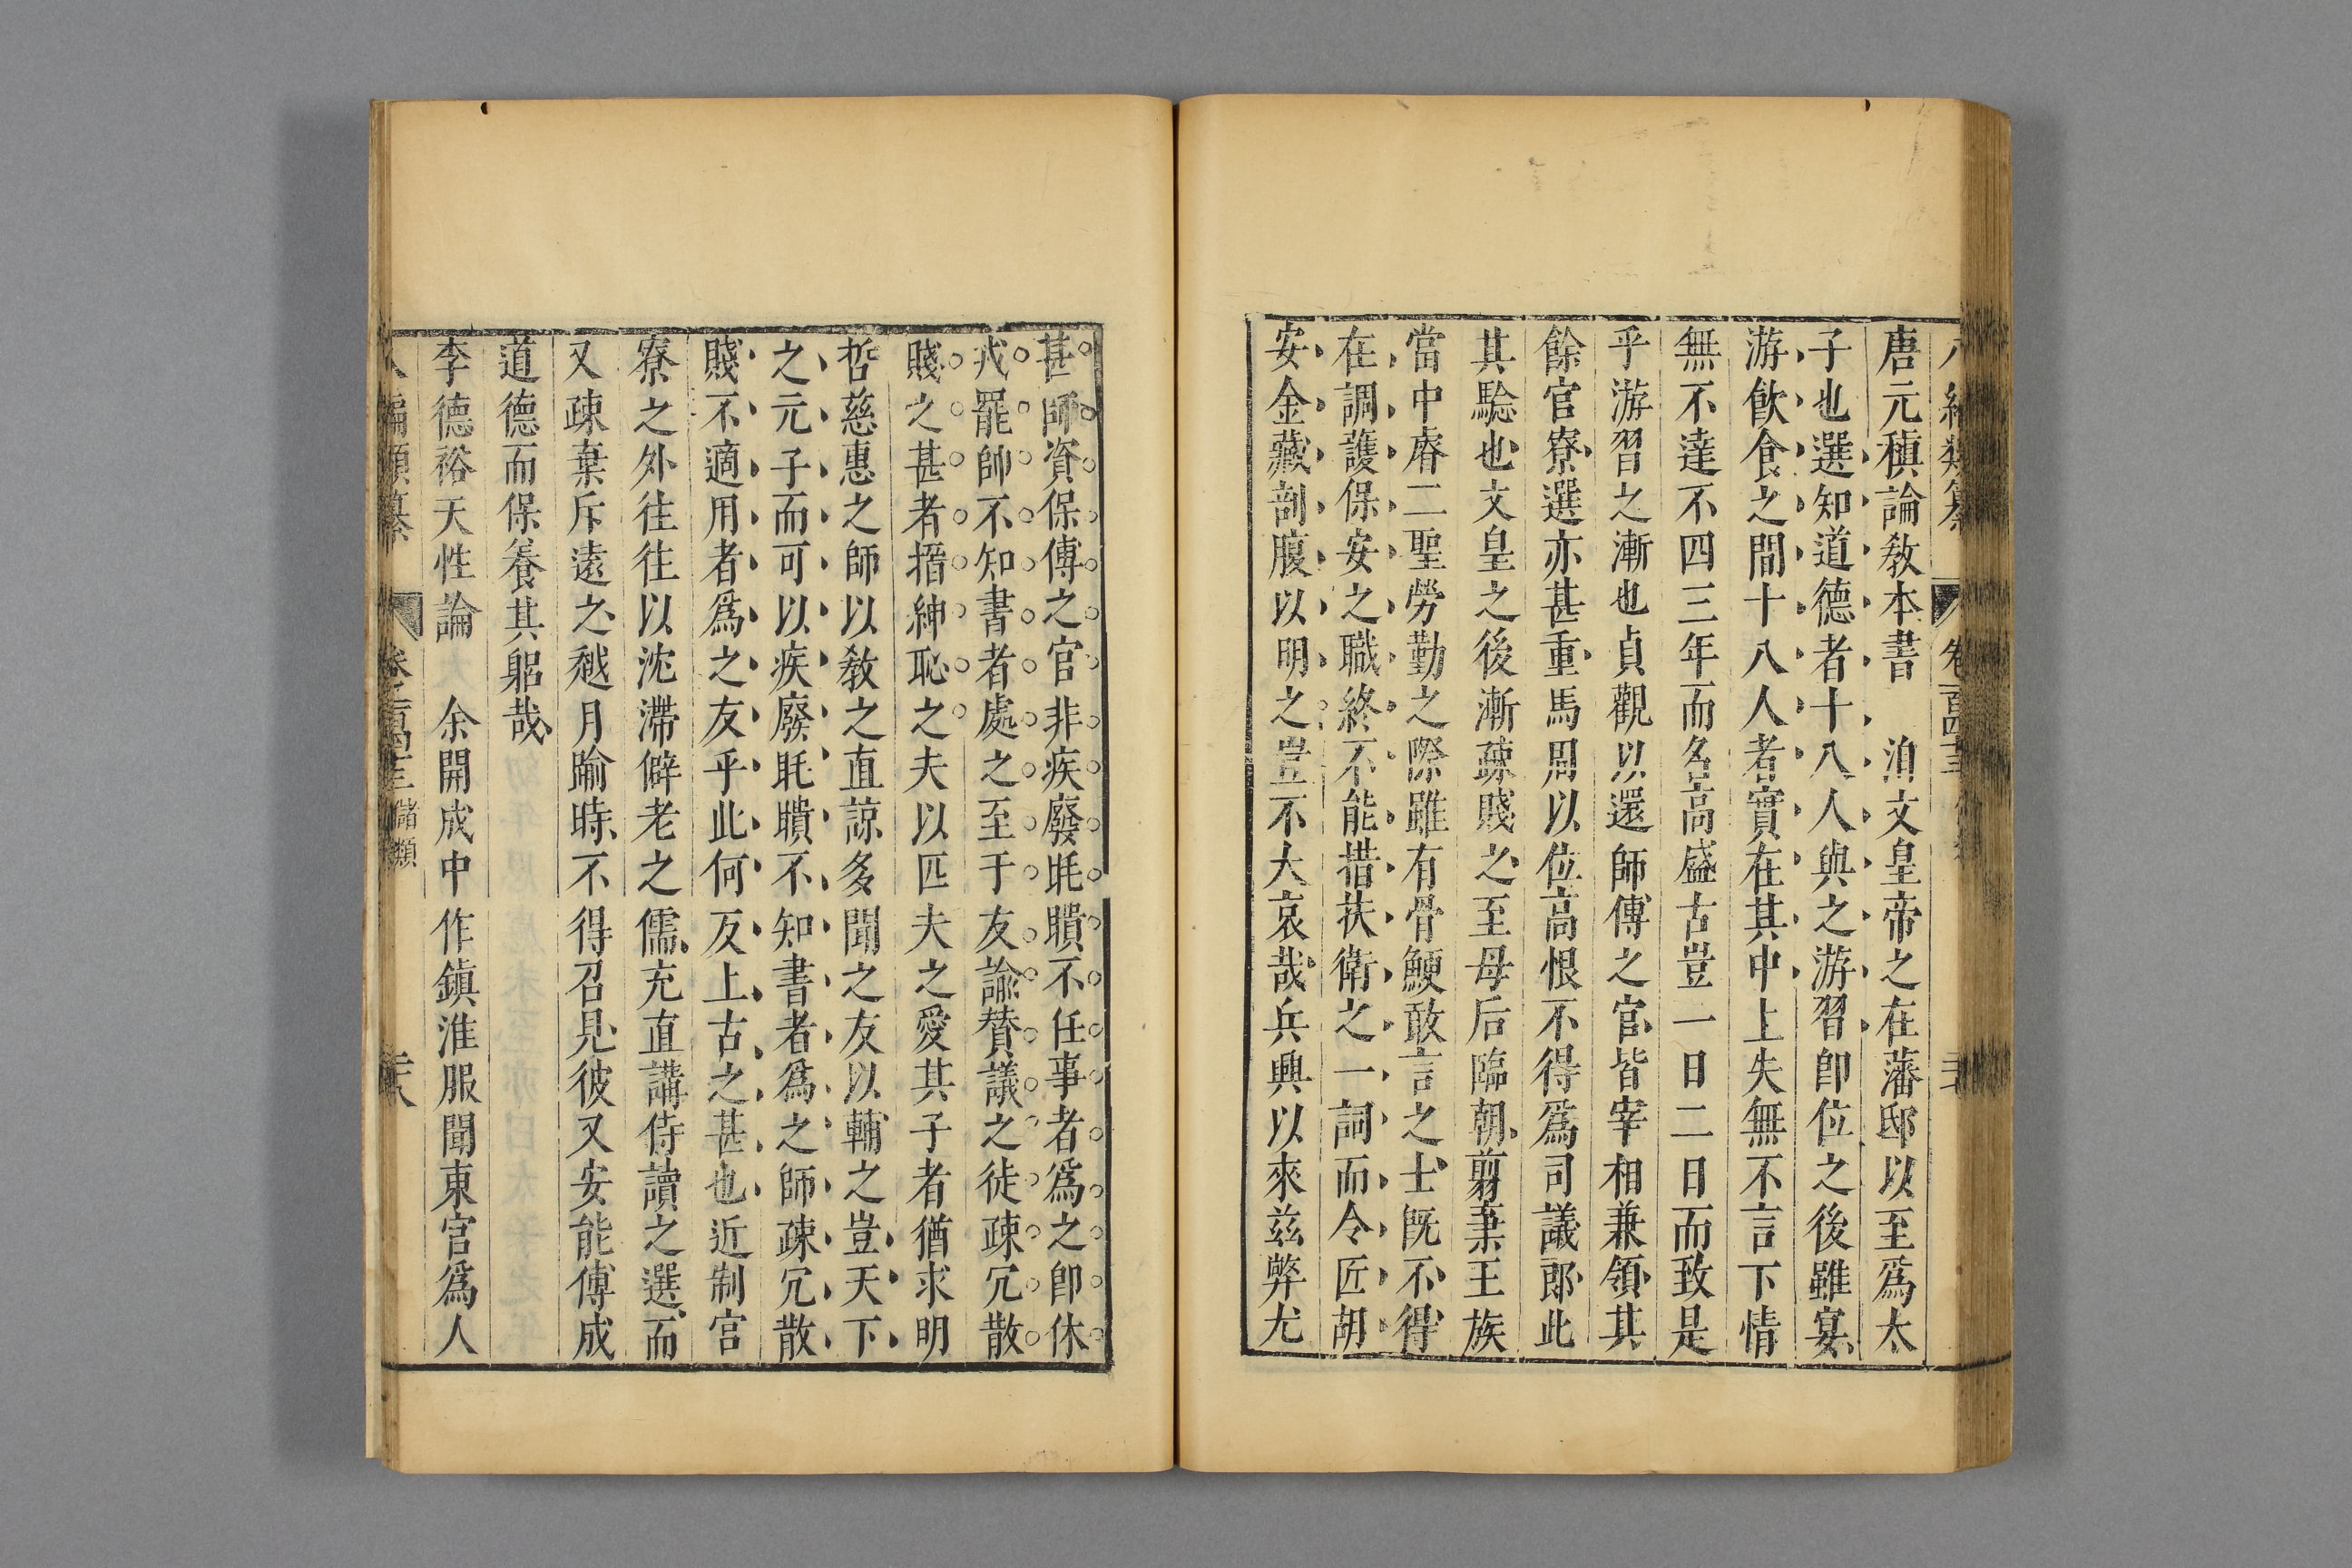 唐元稹論教本書　洎文皇帝之在藩邸以至爲太
子也選知道德者十八人與之游習卽位之後雖宴
游飲食之間十八人者實在其中上失無不言下情
無不達不四三年而名高盛古豈一日二日而致是
乎游習之漸也貞觀以還師傅之官皆宰相兼領其
餘官寮選亦甚重馬周以位高恨不得爲司議郎此
其驗也文皇之後漸疎賤之至母后臨朝翦棄王族
當中睿二聖勞勤之際雖有骨鯁敢言之士旣不得
在調護保安之職終不能措扶衛之一詞而令匠胡
安金藏剖腹以明之豈不大哀哉兵興以來玆弊尤
甚師資保傅之官非疾廢眊聵不任事者爲之卽休
戎罷帥不知書者處之至于友諭賛議之徒疎冗散
賤之甚者搢紳恥之夫以匹夫之愛其子者猶求明
哲慈惠之師以教之直諒多聞之友以輔之豈天下
之元子而可以疾廢眊聵不知書者爲之師疎冗散
賤不適用者爲之友乎此何反上古之甚也近制宮
寮之外往往以沈滯僻老之儒充直講侍讀之選而
又疎棄斥遠之越月踰時不得召見彼又安能傅成
道德而保養其躬哉
李德裕天性論　余開成中作鎭淮服聞東宮爲人
八編類纂　卷之一百四十三　儲類　二十八